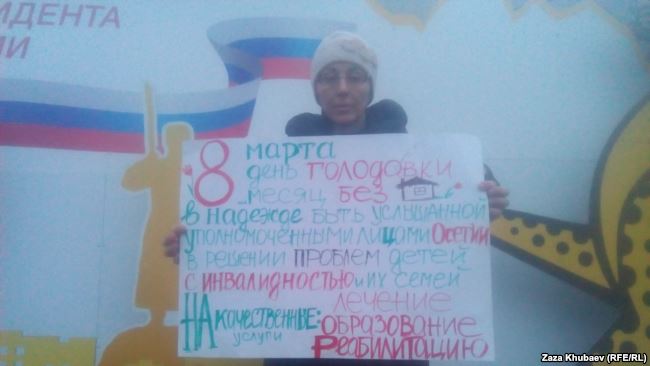 ИДЕНТА
ИИ
8 марта
день голодовки
месяц без
в надежде быть услышанной
уполномоченными лицами Осетии
в решении проблем детей
с инвалидностью и их семей
НА качественные услуги: лечение
образование
реабилитацию
Zaza Khubaev (RFE/RL)